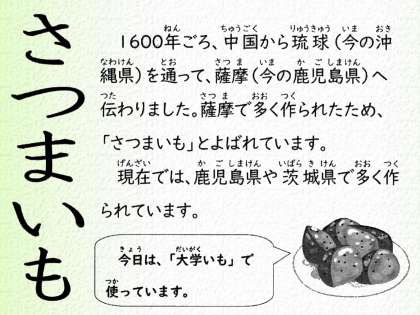 さつまいも
1600年ごろ、中国から琉球(今の沖
縄県)を通って、薩摩(今の鹿児島県)へ
伝わりました。薩摩で多く作られたため、
「さつまいも」とよばれています。
現在では、鹿児島県や茨城県で多く作
られています。
今日は、「大学いも」で
使っています。